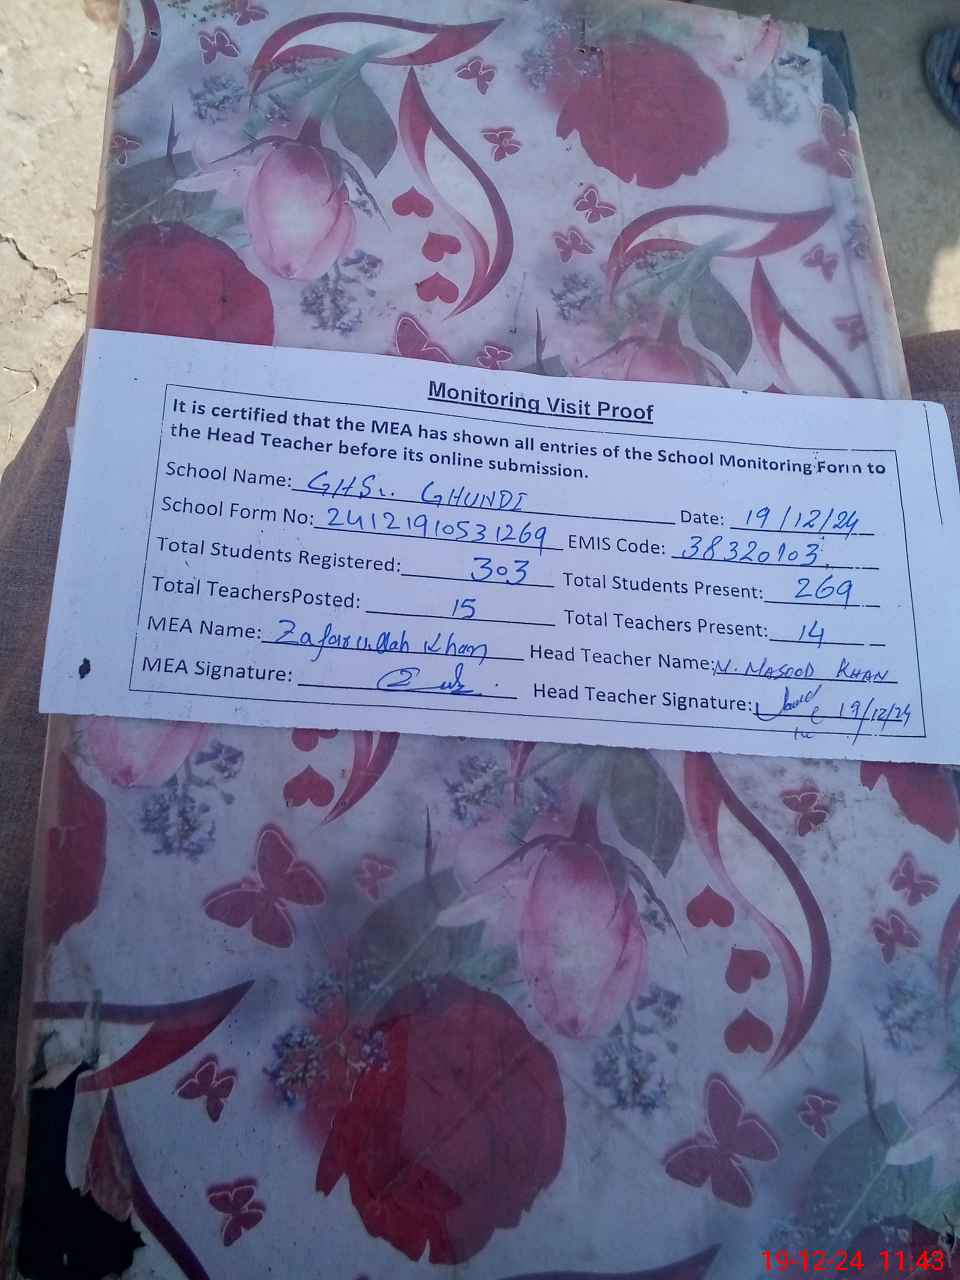 Monitoring Visit Proof
It is certified that the MEA has shown all entries of the School Monitoring Form to
the Head Teacher before its online submission.
School Name: GHS GHUNDI Date: 19/12/24
School Form No: 24121910531269 EMIS Code: 38320103
Total Students Registered: 303 Total Students Present: 269
Total TeachersPosted: 15 Total Teachers Present: 14
MEA Name: Zafar ullah Khan Head Teacher Name: N. MASOOD KHAN
MEA Signature: Head Teacher Signature: 19/12/24
19-12-24 11:43